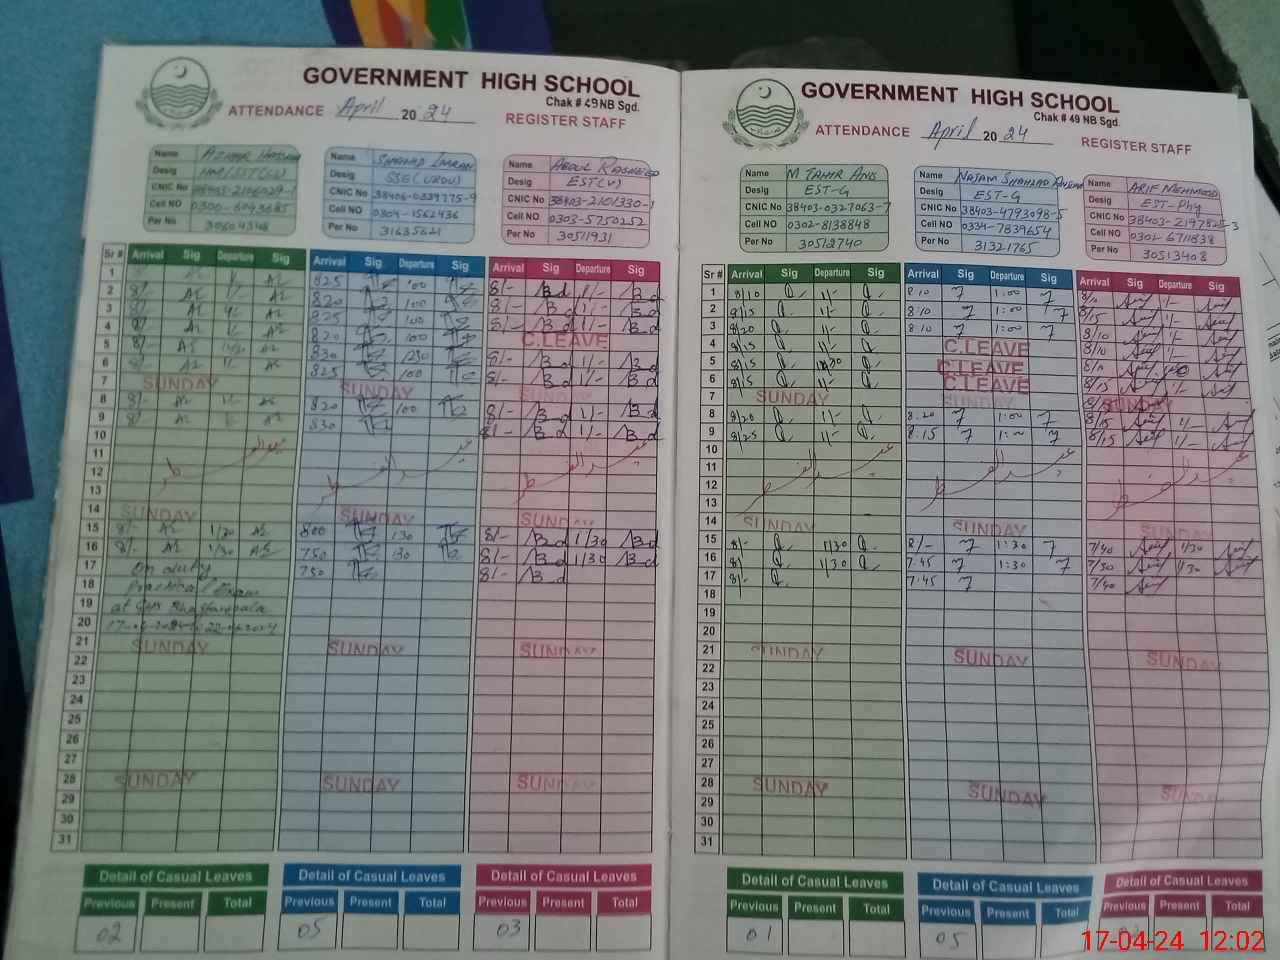 GOVERNMENT HIGH SCHOOL
Chak # 49 NB Sgd.
ATTENDANCE April 2024 REGISTER STAFF
Name AZHAR HASSAN
Desig
CNIC No 38403-2106029-1
Cell NO 0300-6043685
Per No 30504348
Name SHAHZAD IMRAN
Desig SSE(URDU)
CNIC No 38406-0339775-9
Cell NO 0304-1562436
Per No 31635621
Name ABDUL RASHEED
Desig EST(V)
CNIC No 38403-2101330-1
Cell NO 0303-5750252
Per No 30511931
Sr # Arrival Sig Departure Sig Arrival Sig Departure Sig Arrival Sig Departure Sig
1 825 100 8/- 1/-
2 8/- 1/- 820 100 8/- 1/-
3 8/- 825 100 8/- 1/-
4 8/- 1/- 820 100 C.LEAVE
5 8/- 830 1230 8/- 1/-
6 8/- 1/- 825 100 8/- 1/-
7 SUNDAY SUNDAY SUNDAY
8 8/- 1/- 820 100 8/- 1/-
9 8/- 830 8/- 1/-
10
11 عید الفطر عید الفطر عید الفطر
12
13
14 SUNDAY SUNDAY SUNDAY
15 8/- 1/30 800 130 8/- 1/30
16 8/- 1/30 750 130 8/- 1/30
17 On duty 750 8/-
18 Practical Exam
19 at
20
21 SUNDAY SUNDAY SUNDAY
22
23
24
25
26
27
28 SUNDAY SUNDAY SUNDAY
29
30
31
Detail of Casual Leaves Detail of Casual Leaves Detail of Casual Leaves
Previous Present Total Previous Present Total Previous Present Total
02 05 03
GOVERNMENT HIGH SCHOOL
Chak # 49 NB Sgd.
ATTENDANCE April 2024 REGISTER STAFF
Name M TAHIR ANS
Desig EST-G
CNIC No 38403-0327063-7
Cell NO 0302-8138848
Per No 30512740
Name NAJAM SHAHZAD
Desig EST-G
CNIC No 38403-4793098-5
Cell NO 0334-7839654
Per No 31321765
Name ARIF MEHMOOD
Desig EST-Phy
CNIC No 38403-2197825-3
Cell NO 0302-6711838
Per No 30513408
Sr # Arrival Sig Departure Sig Arrival Sig Departure Sig Arrival Sig Departure Sig
1 8/10 1/- 8:10 1:00 8/10 1/-
2 8/15 1/- 8:10 1:00 8/15 1/-
3 8/20 1/- 8:10 1:00 8/10 1/-
4 8/15 1/- C.LEAVE 8/10 1/-
5 8/15 C.LEAVE 8/10
6 8/15 1/- C.LEAVE 8/15 1/-
7 SUNDAY SUNDAY SUNDAY
8 8/20 1/- 8:20 1:00 8/15 1/-
9 8/25 1/- 8:15 1:00 8/15 1/-
10
11 عید الفطر عید الفطر عید الفطر
12
13
14 SUNDAY SUNDAY SUNDAY
15 8/- 1/30 8/- 1:30 7/40 1/30
16 8/- 1/30 7:45 1:30 7/50 1/30
17 8/- 7:45 7/40
18
19
20
21 SUNDAY SUNDAY SUNDAY
22
23
24
25
26
27
28 SUNDAY SUNDAY SUNDAY
29
30
31
Detail of Casual Leaves Detail of Casual Leaves Detail of Casual Leaves
Previous Present Total Previous Present Total Previous Present Total
01 05
17-04-24 12:02